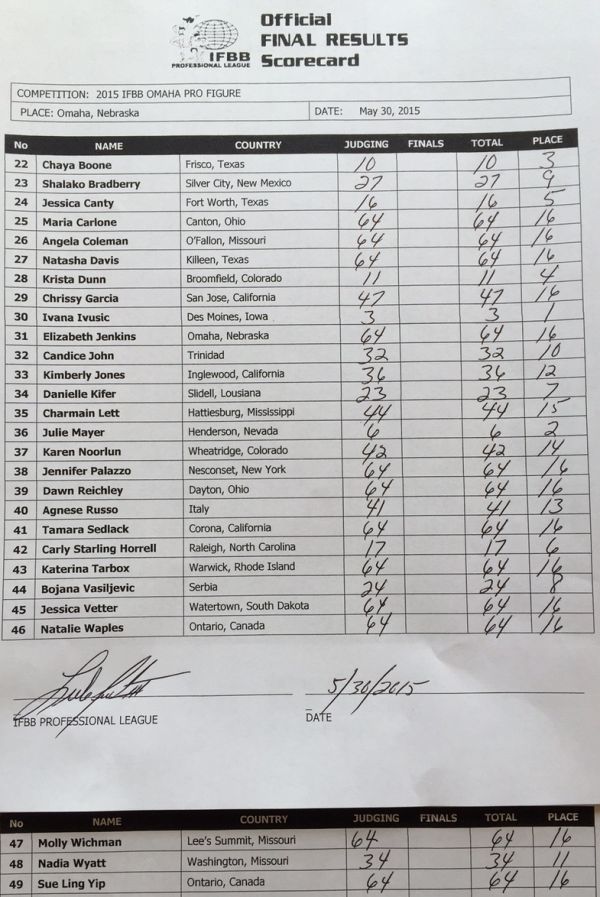 IFBB
PROFESSIONAL LEAGUE
Official
FINAL RESULTS
Scorecard
COMPETITION: 2015 IFBB OMAHA PRO FIGURE
PLACE: Omaha, Nebraska DATE: May 30, 2015
No NAME COUNTRY JUDGING FINALS TOTAL PLACE
22 Chaya Boone Frisco, Texas 10 10 3
23 Shalako Bradberry Silver City, New Mexico 27 27 9
24 Jessica Canty Fort Worth, Texas 16 16 5
25 Maria Carlone Canton, Ohio 64 64 16
26 Angela Coleman O'Fallon, Missouri 64 64 16
27 Natasha Davis Killeen, Texas 64 64 16
28 Krista Dunn Broomfield, Colorado 11 11 4
29 Chrissy Garcia San Jose, California 47 47 16
30 Ivana Ivusic Des Moines, Iowa 3 3 1
31 Elizabeth Jenkins Omaha, Nebraska 64 64 16
32 Candice John Trinidad 32 32 10
33 Kimberly Jones Inglewood, California 36 36 12
34 Danielle Kifer Slidell, Lousiana 23 23 7
35 Charmain Lett Hattiesburg, Mississippi 44 44 15
36 Julie Mayer Henderson, Nevada 6 6 2
37 Karen Noorlun Wheatridge, Colorado 42 42 14
38 Jennifer Palazzo Nesconset, New York 64 64 16
39 Dawn Reichley Dayton, Ohio 64 64 16
40 Agnese Russo Italy 41 41 13
41 Tamara Sedlack Corona, California 64 64 16
42 Carly Starling Horrell Raleigh, North Carolina 17 17 6
43 Katerina Tarbox Warwick, Rhode Island 64 64 16
44 Bojana Vasiljevic Serbia 24 24 8
45 Jessica Vetter Watertown, South Dakota 64 64 16
46 Natalie Waples Ontario, Canada 64 64 16
5/30/2015
IFBB PROFESSIONAL LEAGUE DATE
No NAME COUNTRY JUDGING FINALS TOTAL PLACE
47 Molly Wichman Lee's Summit, Missouri 64 64 16
48 Nadia Wyatt Washington, Missouri 34 34 11
49 Sue Ling Yip Ontario, Canada 64 64 16